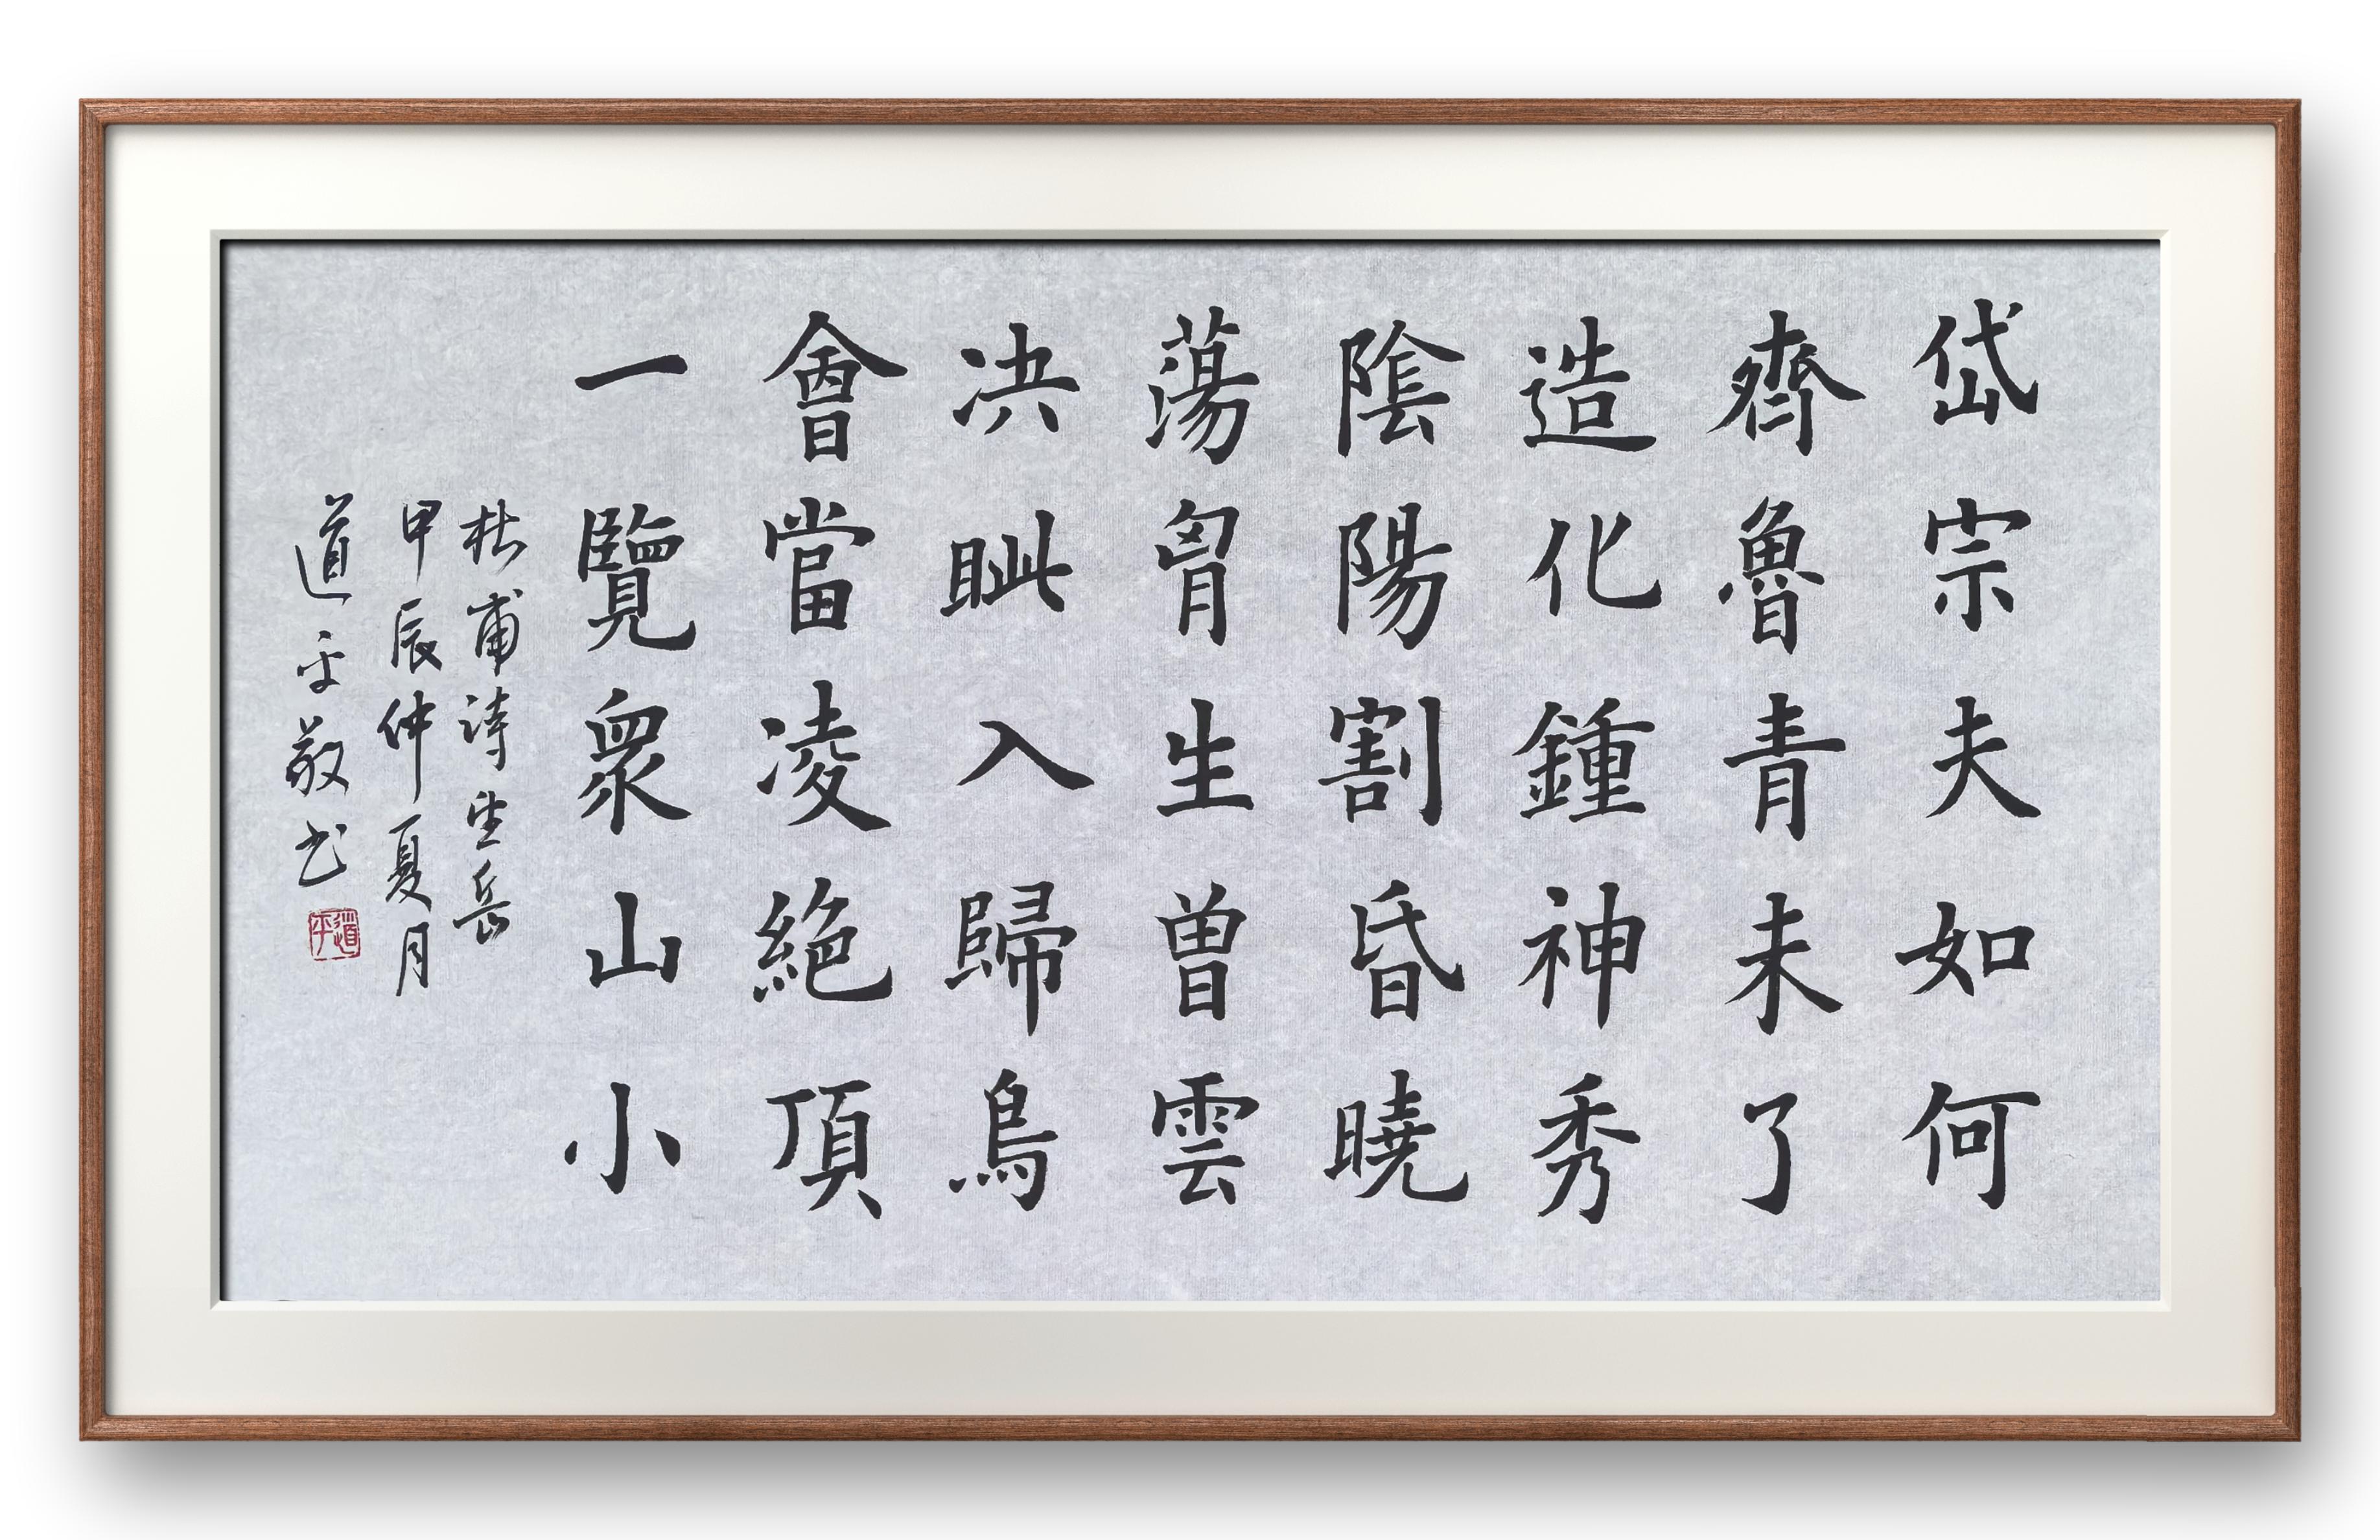 岱宗夫如何
齊魯青未了
造化鍾神秀
陰陽割昏曉
蕩胷生曽雲
决眦入歸鳥
會當凌絶頂
一覽衆山小
杜甫詩望岳
甲辰仲夏月
道平敬书
道平